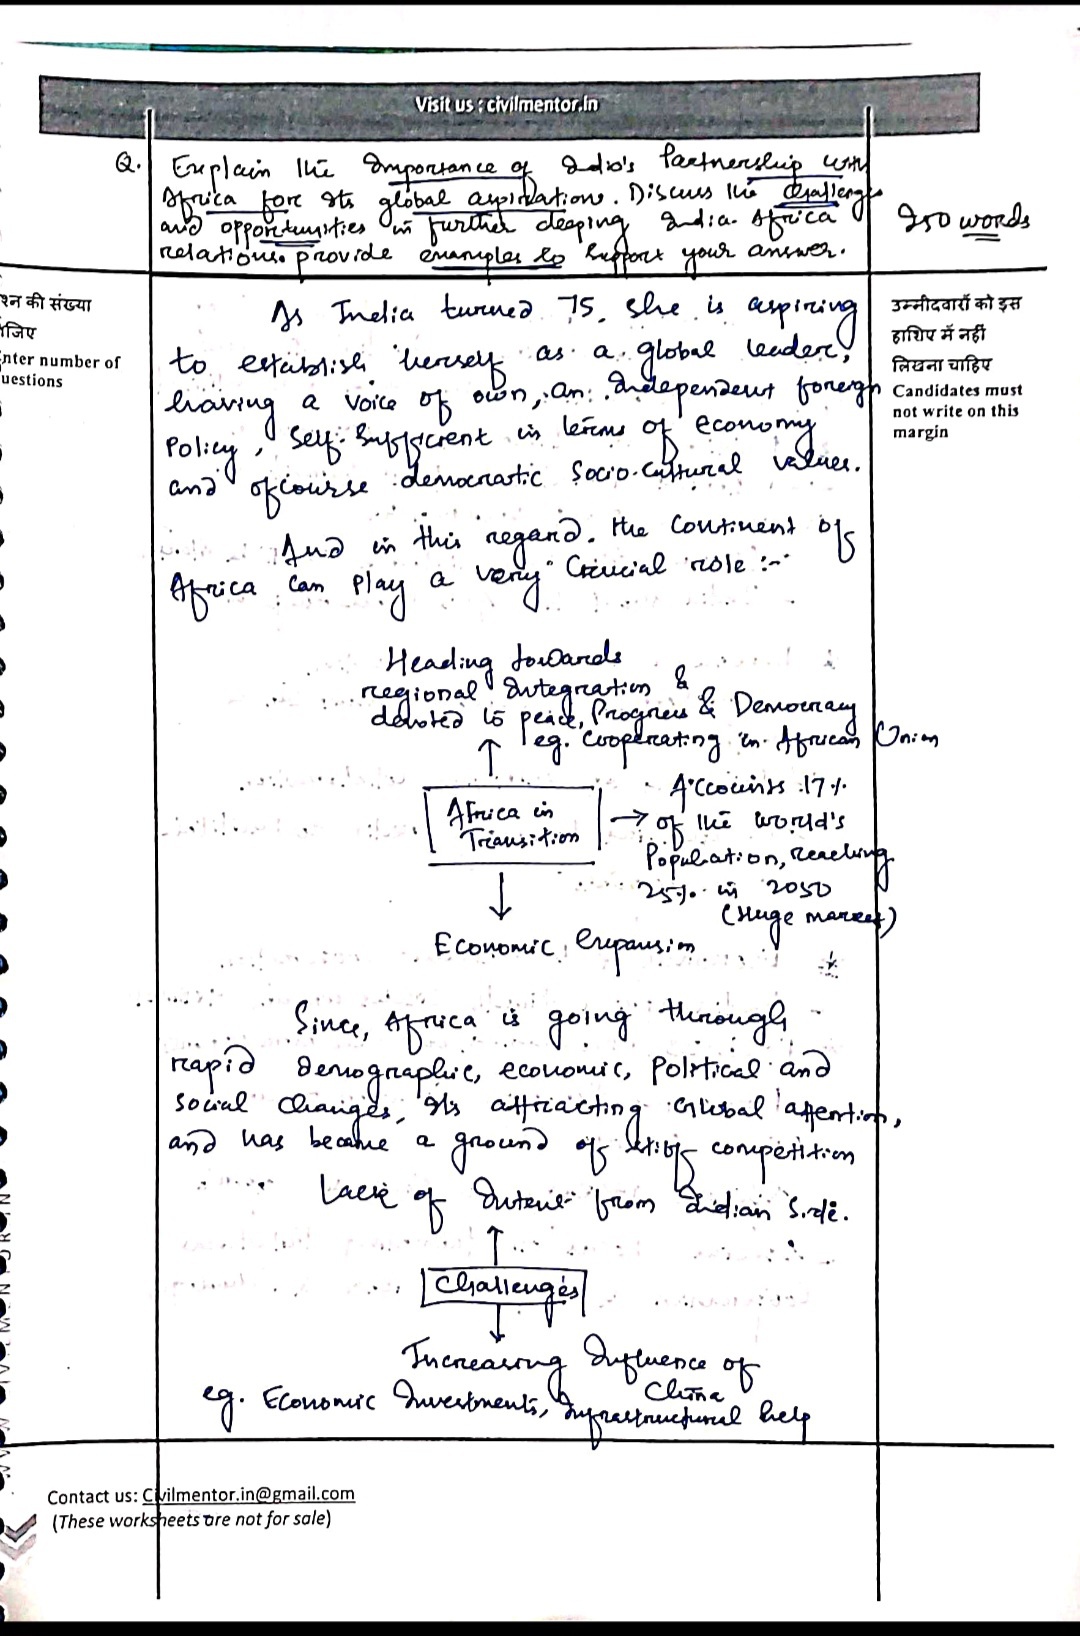 Visit us : civilmentor.in
Q. Explain the Importance of India's Partnership with
Africa for its global aspirations. Discuss the challenges
and opportunities in further deeping India-Africa
relations. provide examples to support your answer.
250 words
श्न की संख्या
जिए
nter number of
uestions
उम्मीदवारों को इस
हाशिए में नहीं
लिखना चाहिए
Candidates must
not write on this
margin
As India turned 75, she is aspiring
to establish herself as a global leader,
having a voice of own, an Independent foreign
Policy, Self-Sufficient in terms of economy
and ofcourse democratic Socio-Cultural values.
And in this regard, the continent of
Africa can play a very Crucial role :-
Heading towards
regional Integration &
devoted to peace, Progress & Democracy
eg. Cooperating in African Union
Africa in
Transition
Accounts 17%
of the world's
Population, reaching
25% in 2050
(Huge market)
Economic expansion
Since, Africa is going through
rapid demographic, economic, Political and
social changes, its attracting Global attention,
and has became a ground of competition
Lack of from Indian Side.
Challenges
Increasing Influence of
China
eg. Economic Investments, Infrastructural help
Contact us: Civilmentor.in@gmail.com
(These worksheets are not for sale)